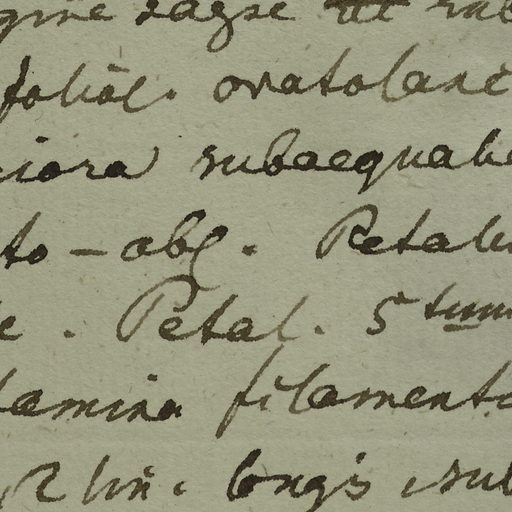 gine saepe ut
foliol. ovatolanc
iora subaequali
to-obl. Petal
e. Petal. 5tum
tamina filamento
2 lin. longis sub